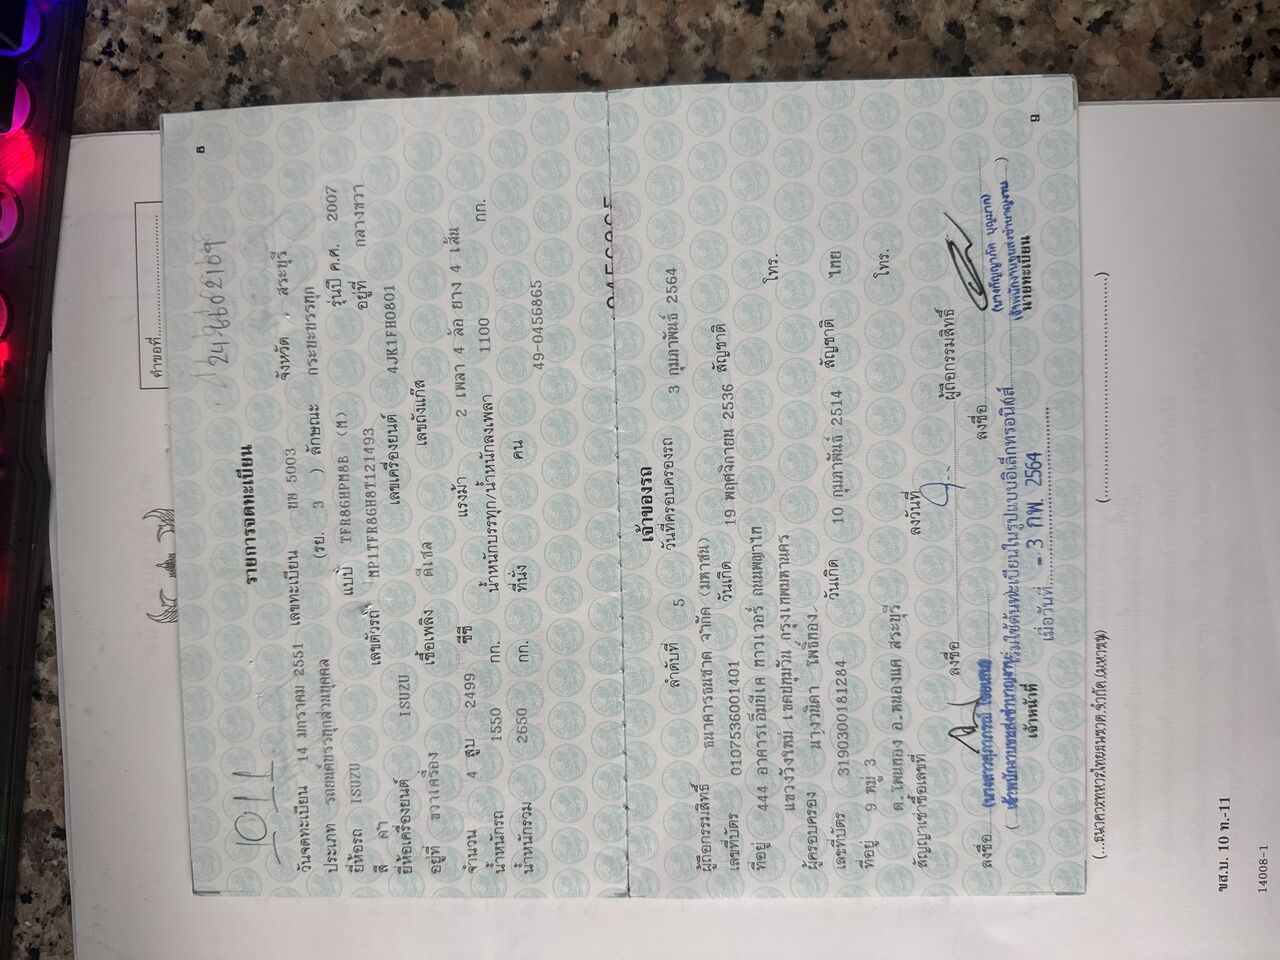 คำขอที่
8
1011
รายการจดทะเบียน
วันจดทะเบียน 14 มกราคม 2551 เลขทะเบียน บพ 5003 จังหวัด สระบุรี
ประเภท รถยนต์บรรทุกส่วนบุคคล (รย. 3 ) ลักษณะ กระบะบรรทุก
ยี่ห้อรถ ISUZU แบบ TFR86HPM8B (M) รุ่นปี ค.ศ. 2007
สี ดำ เลขตัวรถ MP1TFR86H8T121493 อยู่ที่ กลางขวา
ยี่ห้อเครื่องยนต์ ISUZU เลขเครื่องยนต์ 4JK1FH0801
อยู่ที่ ขวาเครื่อง เชื้อเพลิง ดีเซล เลขถังแก๊ส
จำนวน 4 สูบ 2499 ซีซี แรงม้า 2 เพลา 4 ล้อ ยาง 4 เส้น
น้ำหนักรถ 1550 กก. น้ำหนักบรรทุก/น้ำหนักลงเพลา 1100 กก.
น้ำหนักรวม 2650 กก. ที่นั่ง คน
49-0456865
เจ้าของรถ
ลำดับที่ 5 วันที่ครอบครองรถ 3 กุมภาพันธ์ 2564
ผู้ถือกรรมสิทธิ์ ธนาคารธนชาต จำกัด (มหาชน)
เลขที่บัตร 0107536001401 วันเกิด 19 พฤศจิกายน 2536 สัญชาติ
ที่อยู่ 444 อาคารเอ็มบีเค ทาวเวอร์ ถนนพญาไท
แขวงวังใหม่ เขตปทุมวัน กรุงเทพมหานคร โทร.
ผู้ครอบครอง นางวนิดา โพธิ์ทอง
เลขที่บัตร 3190300181284 วันเกิด 10 กุมภาพันธ์ 2514 สัญชาติ ไทย
ที่อยู่ 9 หมู่ 3
ต.โพนทอง อ.หนองแค สระบุรี โทร.
สัญญาเช่าซื้อเลขที่ ลงวันที่
ลงชื่อ ผู้ถือกรรมสิทธิ์
ลงชื่อ ลงชื่อ
เจ้าหน้าที่ นายทะเบียน
เริ่มใช้ต้นทะเบียนในรูปแบบอิเล็กทรอนิกส์
เมื่อวันที่ - 3 กพ. 2564
9
ขส.บ. 10 ท.-11
14008-1